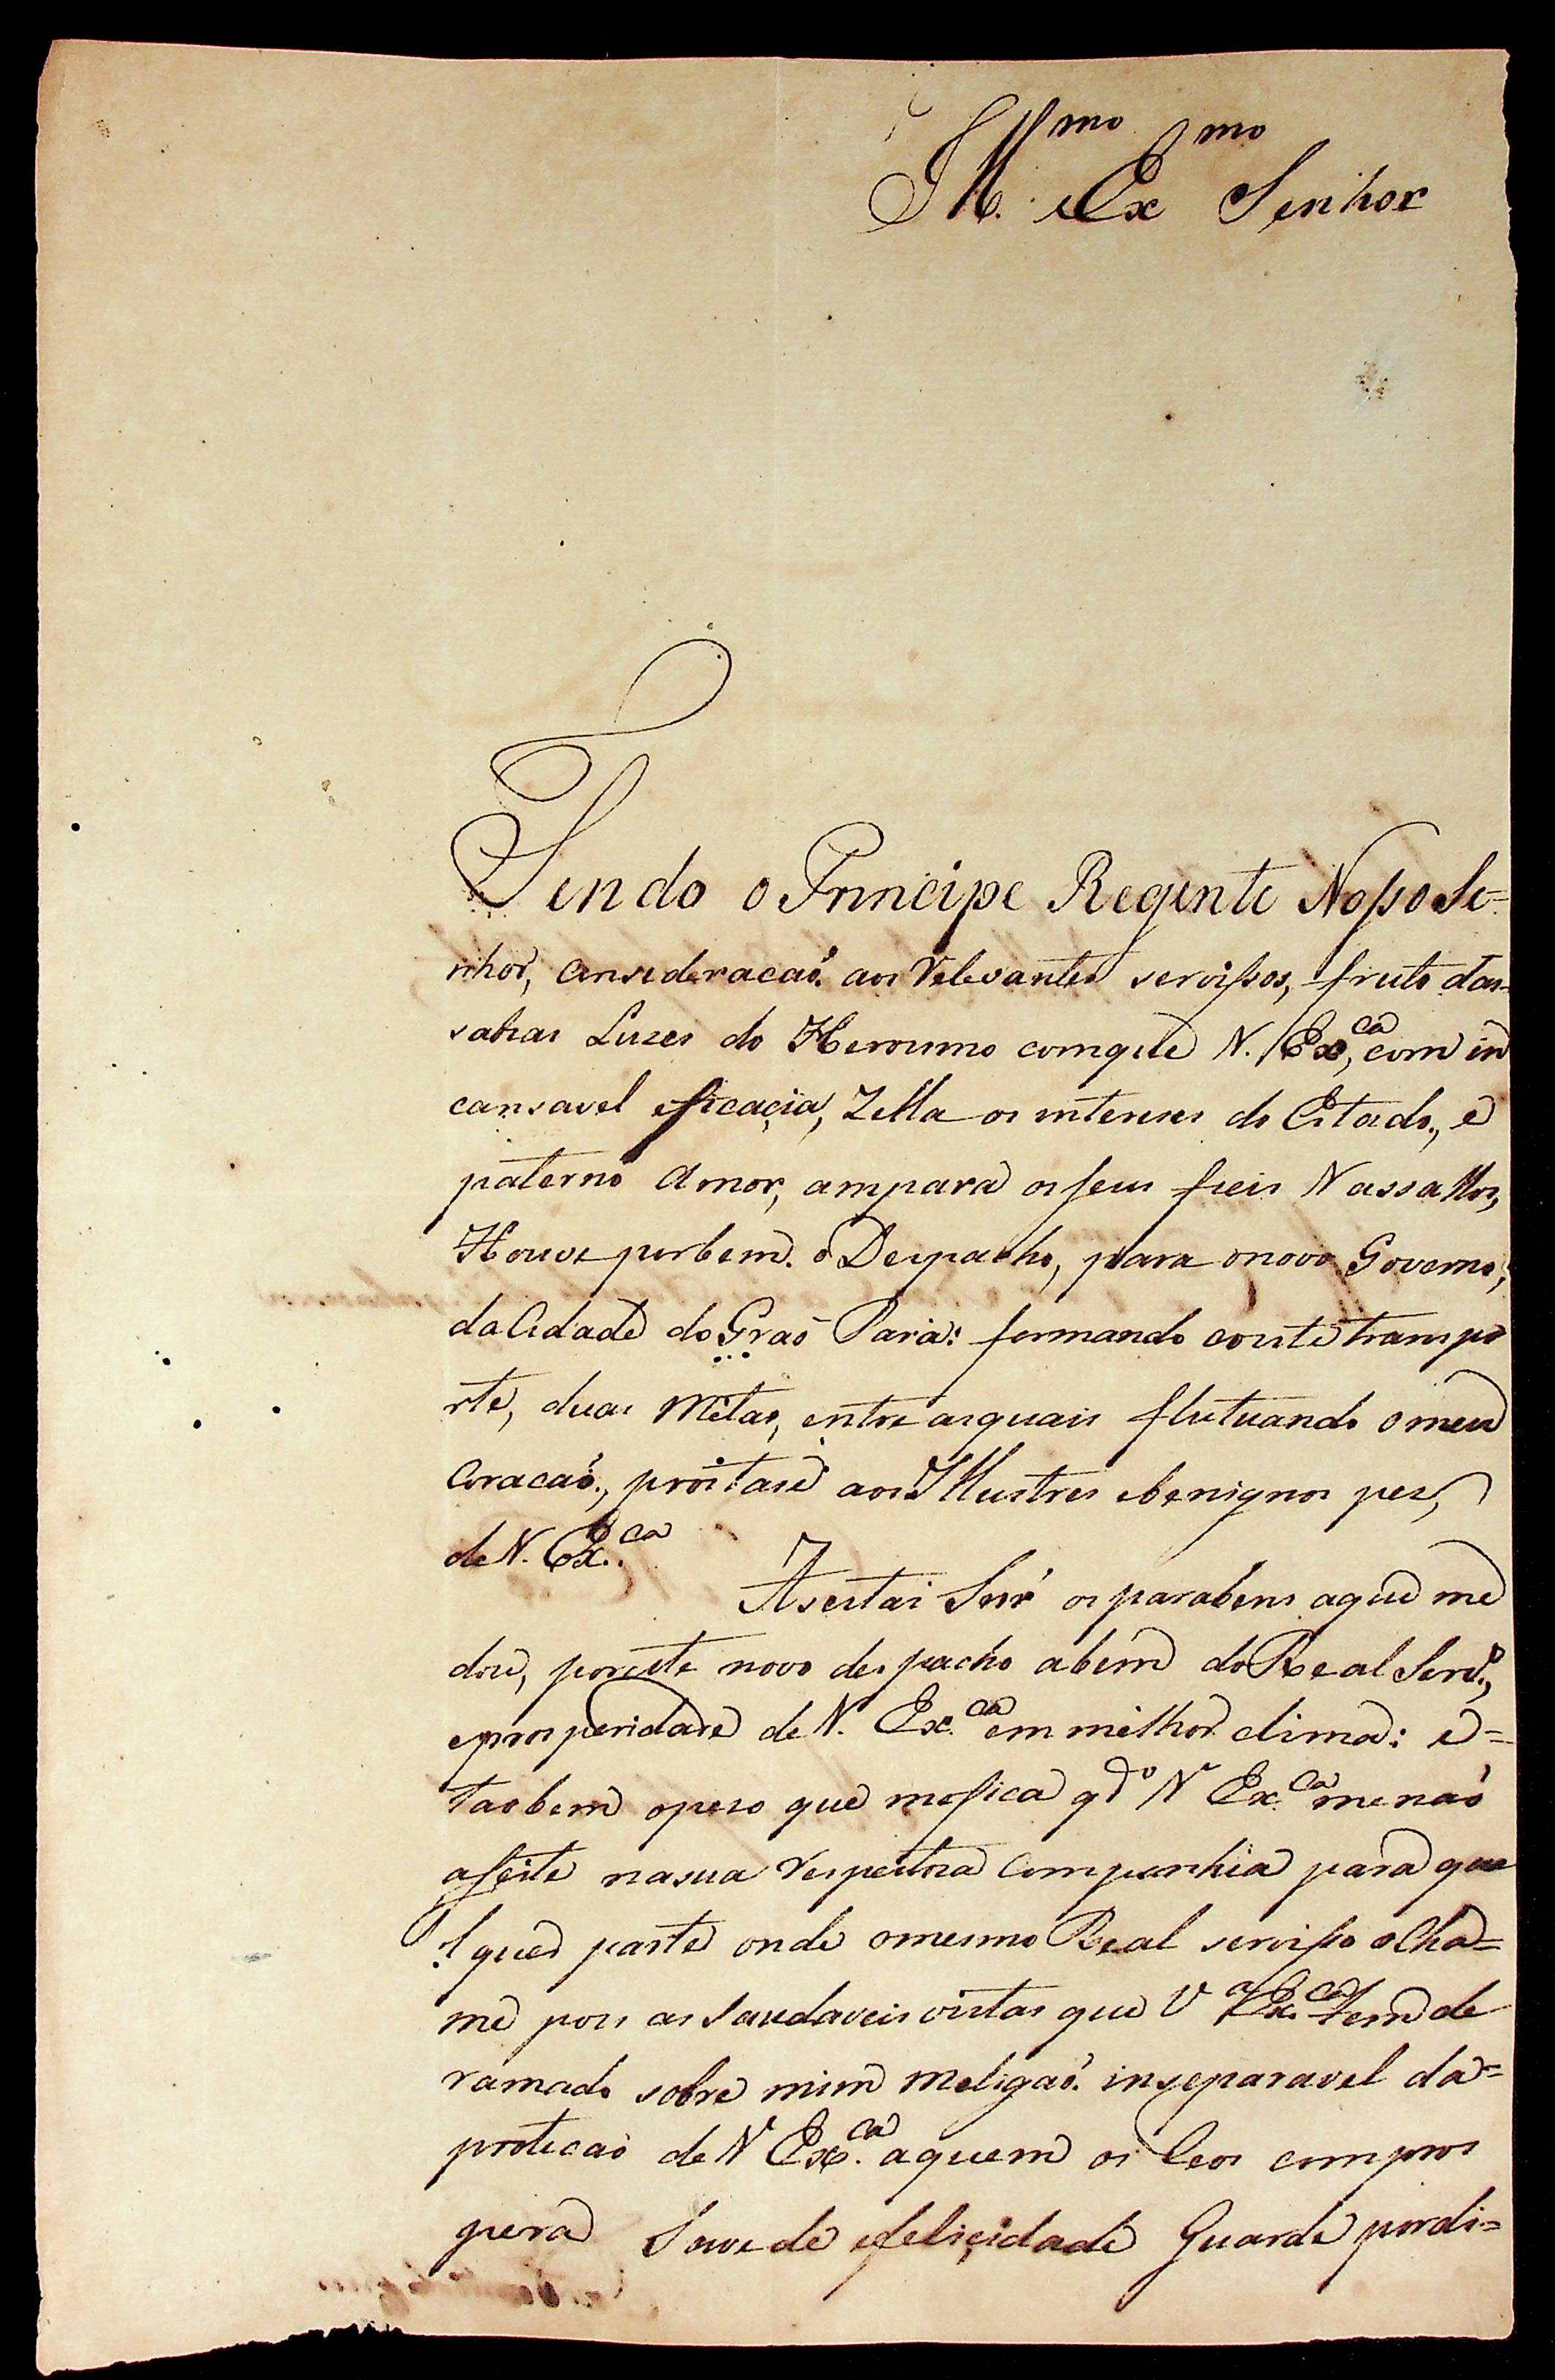 Ill.mo e Ex.mo Senhor
Tendo o Principe Regente Nosso Se=
nhor, Consideracaõ. aos Relevantes servissos, fruto das
sabias Luzes do Heroismo comque V. Ex.ca, com in
cansavel eficacia, Zella os interises do Estado., e
paterno Amor, ampara os seus fieis Vassallos,
Houve porbem. o Despacho, para onovo Governo,
da Cidade do Graõ Pará: formando coeste transpo
rte, duas Metas, entre asquais flutuando o meu
Coracaõ., prostase aos Illustres ebenignos pes,
de V. Ex.ca
Aseitai Snr̃ os parabens aque me
dou, poreste novo despacho abem do Real Serv.o,
eprosperidade de V. Ex.ca em milhor clima: e=
taobem opezo que mefica q.do V Ex.ca menaõ
aseite nasua respeitoza Companhia para qua
lquer parte onde omesmo Real servisso olha=
me pois as Saudaveis vistas que V.a Ex.ca tem de
ramado sobre mim meligaõ. inseparavel da=
protecaõ de V Ex.ca aquem os Ceos com pros
pera Saude efelicidade Guarde pordi=